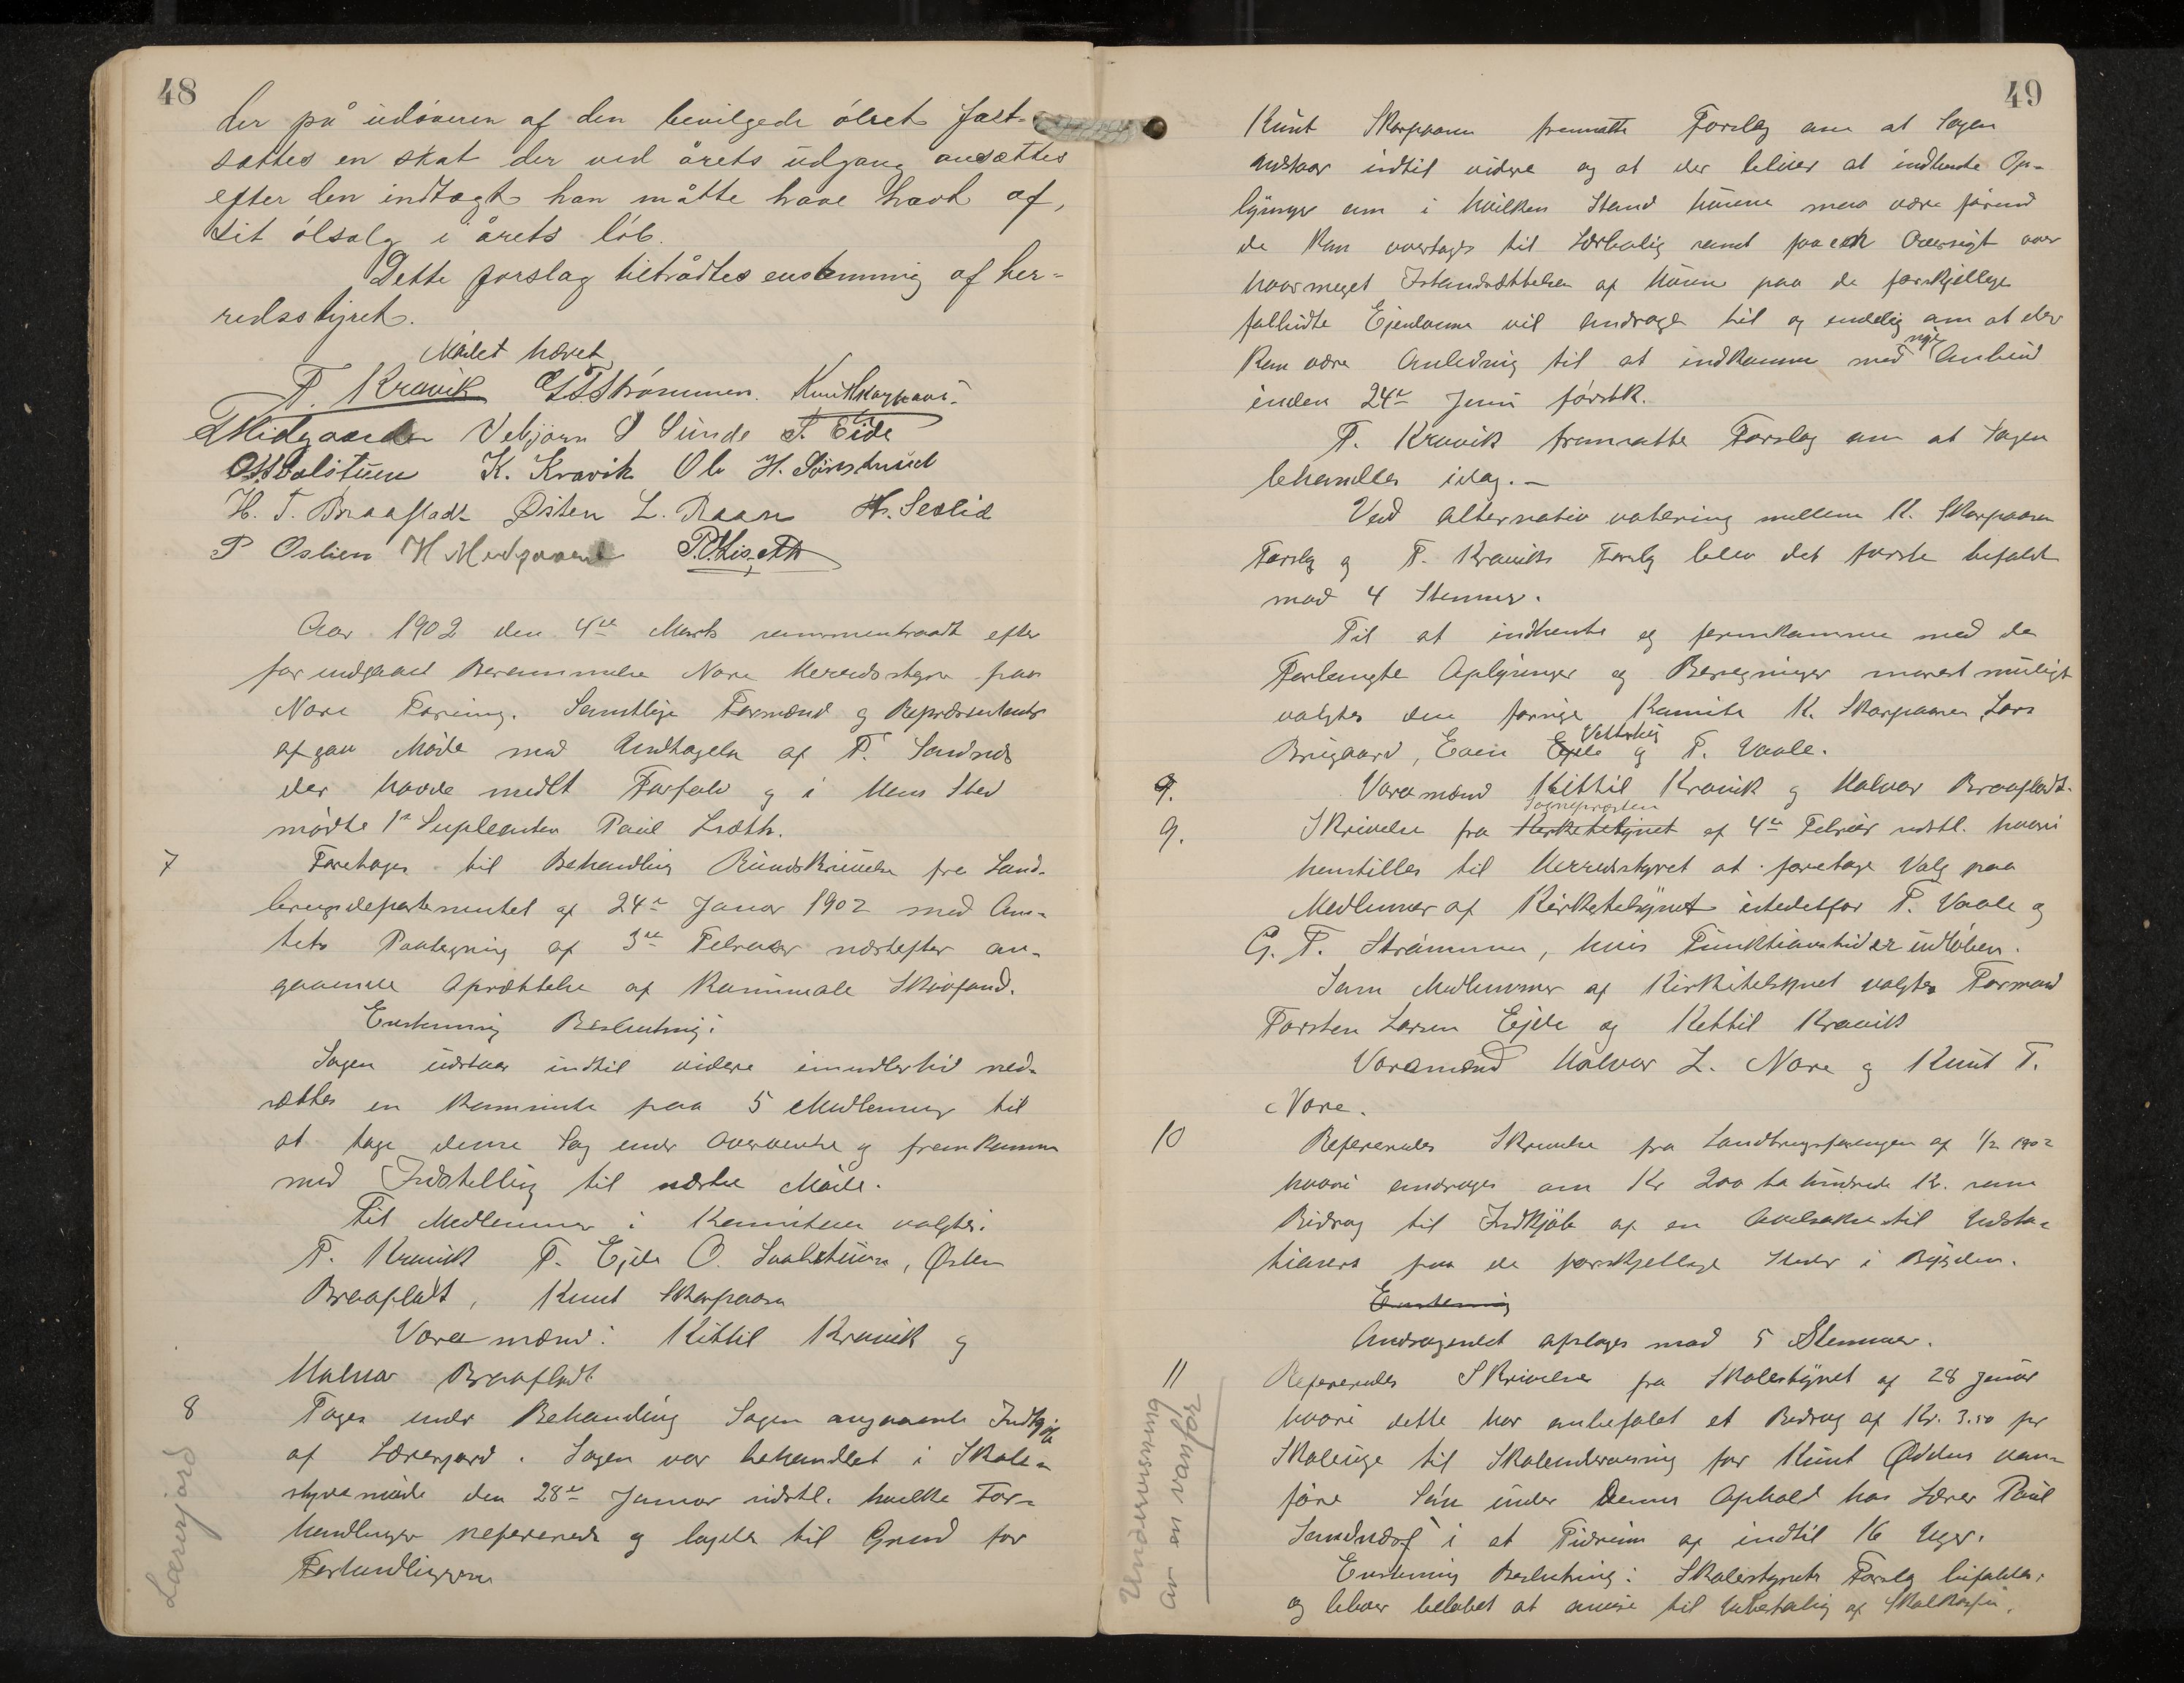 48
der på udöveren af den bevilgede ölret fast-
sættes en skat der ved årets udgang ansættes
efter den indtægt han måtte have havt af,
sit ölsalg i årets löb.
Dette forslag tiltrådtes enstemmig af her-
redsstyret.
Mödet hævet
T. Kravik G T Strömmen. Knut Skarpaas
T Midgaarden Vebjörn S Sunde T. L. Eide
O S Solstuen K. Kravik Ole H.
H. T. Braafladt Østen L. Raaen H. Seslid
P Oslien H Midgaard
Aar 1902 den 4de Marts sammentraadt efter
forudgaaet Berammelse Nore Herredsstyre paa
Nore Forening. Samtlige Formænd og Repræsentanter
afgav Möde med Undtagelse af T. Sandnes
der havde meldt Forfald og i Hans Sted
mödte 1ste Supleanten Paul Lræth.
7
Foretages til Behandling Rundskrivelse fra Land-
brugsdepartementet af 24de Januar 1902 med Am-
tets Paategning af 3de Februar næstefter an-
gaaende Oprættelse af Kommunale Skovfond.
Enstemmig Beslutning:
Sagen udstaar indtil videre imidlertid ned-
sættes en Kommite paa 5 Medlemmer til
at tage denne Sag under Overveielse og fremkomme
med Indstilling til næste Möde.
Til Medlemmer i Komiteen valgtes:
T. Kravik T. Ejde O. Saalstuen, Østen
Braafladt, Knut Skarpaasen
Varamænd: Kittil Kravik og
Halvor Braafladt
8
Tages under Behandling Sagen angaaende Indkjöb
af Lærerjord. Sagen var behandlet i Skole-
styremöde den 28de Januar sidstl. hvilke For-
handlinger refereredes og lagdes til Grund for
Forhandlingerne
Lærerjord
49
Knut Skarpaasen fremsatte Forslag om at Sagen
udstaar indtil videre og at der bliver at indhente Op-
lysninger om i hvilken Stand Husene maa være förend
de kan overtages til Lærbolig samt faa en Oversigt over
hvormeget Istandsættelsen af Husene paa de forskjellige
falbudte Ejendomme vil andrage til og endelig om at der
kan være Anledning til at indkomme med nye Anbud
inden 24de Juni förstk.
T. Kravik fremsatte Forslag om at Sagen
behandles idag.—
Ved alternativ votering mellem K. Skarpaasen
Forslag og T. Kraviks Forslag blev det förste bifaldt
mod 4 Stemmer.
Til at indhente og fremkomme med de
Forlangte Oplysninger og Beregninger snarest muligt
valgtes den forrige Komite K. Skarpaasen, Lars
Brugaard, Even Vetterhus og T. Vaale.
Varamænd Kittil Kravik og Halvor Braafladt.
9.
Skrivelse fra Sognepræsten af 4de Februar sidstl. hvori
henstilles til Herredsstyret at foretage Valg paa
Medlemmer af Kirketilsynet istedetfor T. Vaale og
G. T. Strömmen, hvis Funktionstid er udlöben.
Som Medlemmer af Kirketilsynet valgtes Formand
Torsten Larsen Ejde og Kettil Kravik
Varamænd Halvor L. Nore og Knut T.
Nore.
10
Refereredes Skrivelse fra Landbrugsforeningen af 1/2 1902
hvori andrages om Kr 200 to hundrede Kr. som
Bidrag til Indkjöb af en Avlsokse til Udsta-
tionera paa de forskjellige Steder i Bygden.
Enstemmig
Andragendet afslages mod 5 Stemmer.
11
Refereredes Skrivelse fra Skolestyret af 28 Januar
hvori dette har anbefalet et Bidrag af Kr. 3.50 pr
Skoleuge til Skoleundervisning for Knut Øddens van-
före Sön under Dennes Ophold hos Lærer Paul
Sandnæs i et Tidsrum af indtil 16 Uger.
Enstemmig Beslutning: Skolestyrets Forslag bifaldes,
og bliver belöbet at anvise til Udbetaling af Skolkassen.
Undervisning
av en vanför